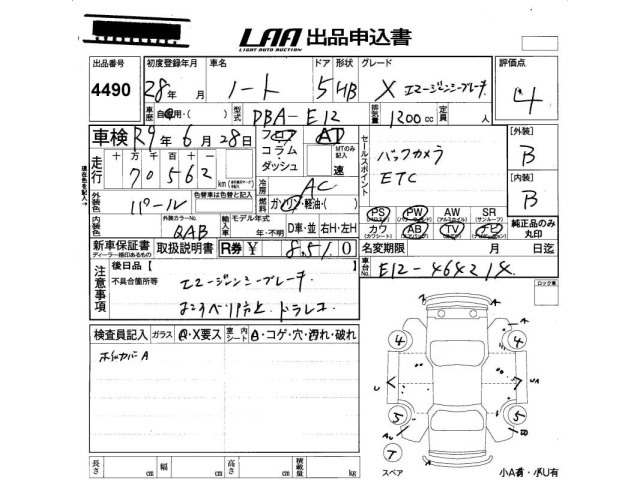 LAA 出品申込書
LIGHT AUTO AUCTION
出品番号 初度登録年月 車名 ドア 形状 グレード 評価点
4490 28年 月 ノート 5 HB X エマージェンシーブレーキ 4
車歴 自家用・( ) 型式 DBA-E12 排気量 1200cc 定員 人
車検 R9年 6月 28日 フロア コラム・ダッシュ AT MTのみ記入 速 セールスポイント [外装]
バックカメラ B
走行 十 万 千 百 十 一
70562 km 冷房 AC ETC [内装]
B
外装色 パール 色替車は色替と記入 燃料 ガソリン・軽油・( ) PS PW AW SR
外装カラーNo. QAB 輸入車 モデル年式 年・不明 D車・並 右H・左H カワ AB TV 純正品のみ丸印
新車保証書 取扱説明書 R券 ¥ 8,510 名変期限 月 日迄
ディーラー捺印あるもの
注意事項 後日品 [ 車台No. E12-464214
不具合箇所等 エマージェンシーブレーキ ロック車
ドラレコ
検査員記入 ガラス Q・X要ス 室内シート A・コゲ・穴・汚れ・破れ
A
A
4 4
U UA
5 5
AU
T
長さ cm 幅 cm 高さ cm 積載量 kg スペア 小A有・小U有